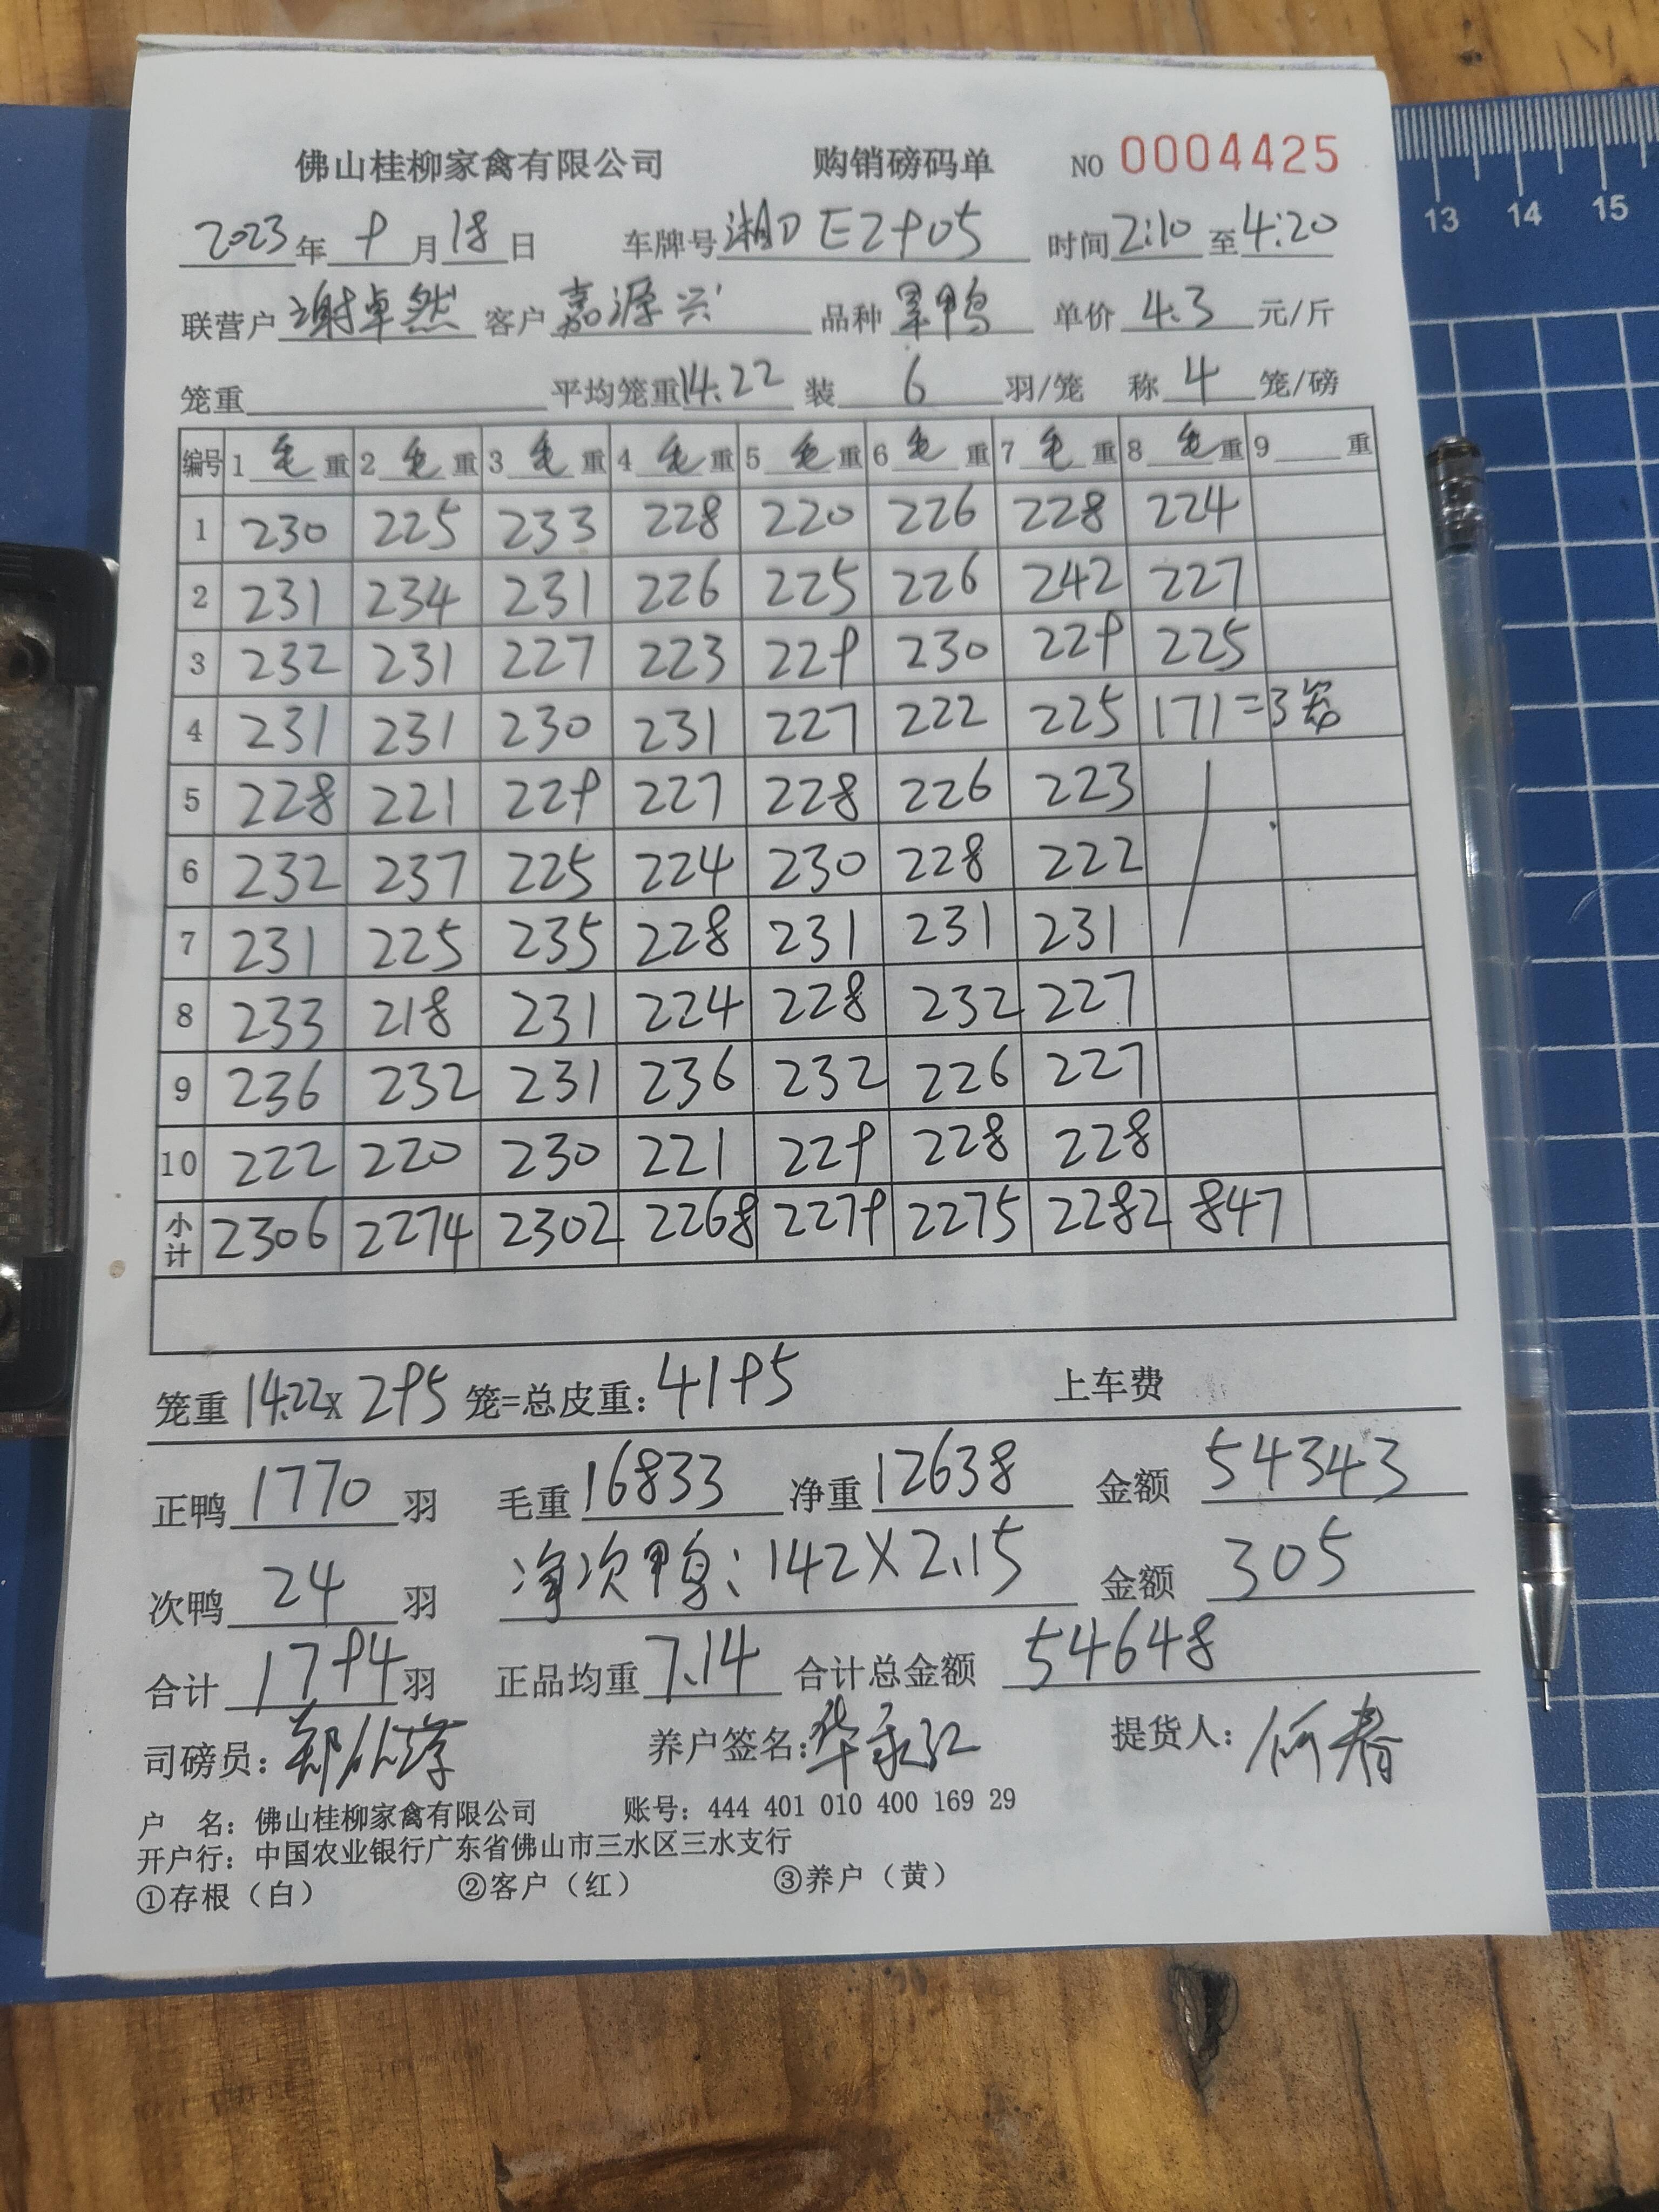 佛山桂柳家禽有限公司 购销磅码单 NO 0004425
2023年 9月18日 车牌号湘D E2905 时间2:10至4:20
联营户 谢卓然 客户 嘉源兴 品种 单价 4.3 元/斤
笼重 平均笼重14.22 装 6 羽/笼 称 4 笼/磅
编号 1 毛 重 2 毛 重 3 毛 重 4 毛 重 5 毛 重 6 毛 重 7 毛 重 8 毛 重 9 重
1 230 225 233 228 220 226 228 224
2 231 234 231 226 225 226 242 227
3 232 231 227 223 229 230 229 225
4 231 231 230 231 227 222 225 171=3
5 228 221 229 227 228 226 223
6 232 237 225 224 230 228 222
7 231 225 235 228 231 231 231
8 233 218 231 224 228 232 227
9 236 232 231 236 232 226 227
10 222 220 230 221 229 228 228
小计 2306 2274 2302 2268 2279 2275 2282 847
笼重 14.22x 295 笼=总皮重: 4195 上车费
正鸭 1770 羽 毛重 16833 净重 12638 金额 54343
次鸭 24 羽 净次鸭: 142X2.15 金额 305
合计 1794 羽 正品均重 7.14 合计总金额 54648
司磅员: 养户签名: 提货人: 何春
户 名: 佛山桂柳家禽有限公司 账号: 444 401 010 400 169 29
开户行: 中国农业银行广东省佛山市三水区三水支行
①存根（白） ②客户（红） ③养户（黄）